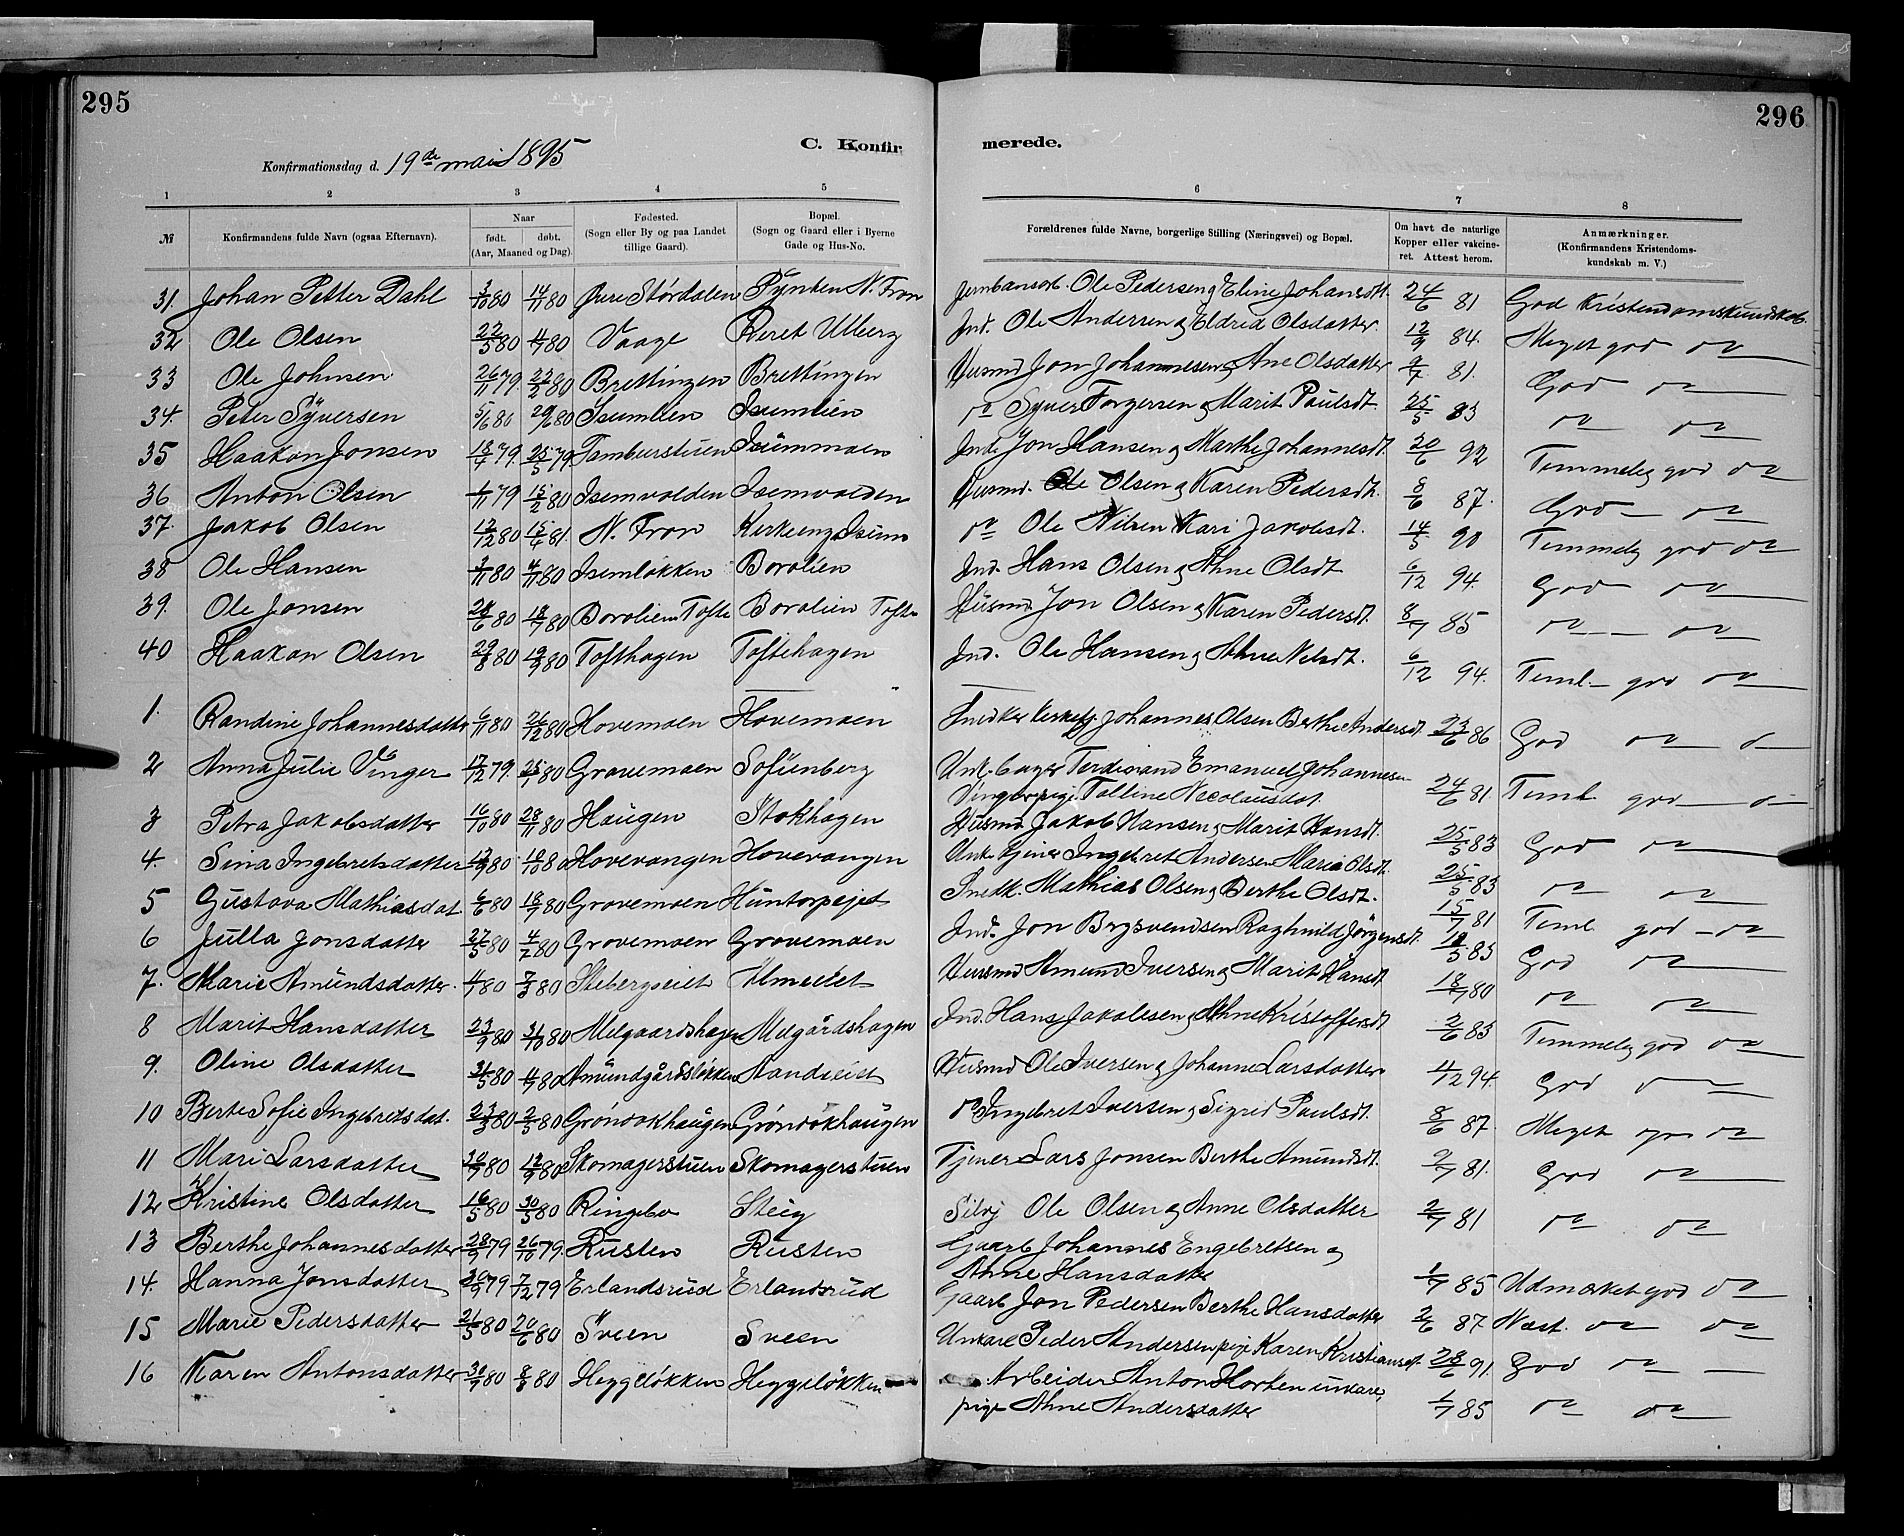 295
296
C. Konfir
merede.
Konfirmationsdag d. 19de mai 1895
1 2 3 4 5 6 7 8
№ Konfirmandens fulde Navn (ogsaa Efternavn). Naar født. døbt. (Aar, Maaned og Dag). Fødested. (Sogn eller By og paa Landet tillige Gaard). Bopæl. (Sogn og Gaard eller i Byerne Gade og Hus-No. Forældrenes fulde Navne, borgerlige Stilling (Næringsvei) og Bopæl. Om havt de naturlige Kopper eller vakcineret. Attest herom. Anmærkninger. (Konfirmandens Kristendomskundskab m. V.)
31. Johan Petter Dahl 3/10 80 14/11 80 Øvre Størdalen Pynten N. Fron Jernbanearb. Ole Pedersen og Eline Johansdt. 24/6 81 God Kristendomskundskab.
32 Ole Olsen 22/5 80 4/7 80 Vaage Beret Ulberg Ind. Ole Andersen og Eldrid Olsdatter. 12/9 84. Meget god do
33 Ole Johnsen 26/11 79 22/2 80 Brettingen Brettingen Husmd Jon Johannesen og Ane Olsdatter 9/7 81. God do
34. Peter Syversen 5/6 80 29/6 80 Isumlien Isumlien do Syver Torgersen og Marit Paulsdt. 25/5 83 do do
35 Haakon Jonsen 13/4 79. 25/5 79 Tamburstuen Isummoen Ind. Jon Hansen og Marthe Johannesdt. 20/6 92 Temmelig god do
36 Anton Olsen 1/11 79 15/2 80 Isemvolden Isemvolden Husmd. Ole Olsen og Karen Pedersdt. 8/6 87. God do
37. Jakob Olsen 12/12 80 15/4 81. N. Fron Kirkeeng Isum do Ole Nilsen Kari Jakobsdt. 14/5 90 Temmelig god do
38 Ole Hansen 3/11 80 4/11 80 Isemløkken Borolien Ind. Hans Olsen og Ahne Olsdt 6/12 94. God do
39. Ole Jonsen 28/6 80 18/7 80 Borolien Tofte Borolien Tofte Husmd. Jon Olsen og Karen Pedersdt. 8/7 85 do do
40 Haakon Olsen 29/8 80 19/9 80 Tofthagen Toftehagen Ind. Ole Hansen og Ahne Nelsdt. 6/12 94. Teml. god do
1. Randine Johannesdatter 6/11 80 26/12 80 Hovemoen Hovemoen Snedker Johannes Olsen Berthe Andersdt. 23/6 86 God do
2 Anna Julie Vinger 17/12 79. 25/1 80 Gravemoen Sofienberg Unk. Ferdinand Emanuel Johannesen
Vinger pige Talline Nicolausdat. 24/6 81. Teml god
3 Petra Jakobsdatter 16/10 80 28/11 80 Haugen Stokhagen Husmd Jakob Hansen og Marit Hansdt. 25/5 83 God do
4. Sina Ingebretsdatter 12/9 80 10/10 80 Hovevangen Hovevangen Unk. tjener Ingebret Andersen Marie Olsdt. 25/5 83 do do
5 Gustava Mathiasdat 6/6 80 18/7 80 Grovemoen Huntorpejet Snedk. Mathias Olsen og Berthe Olsdt. 15/7 81 Teml god do
6 Julla Jonsdatter 27/5 80 4/7 80 Grovemoen Grovemoen Ind. Jon Brysvendsen Raghnild Jørgensdt. 10/5 83 God do
7. Marie Amundsdatter. 4/1 80 7/3 80 Stebergseiet Almeiet Husmd Amund Iversen og Marit Hansdt 18/7 80 do do
8 Marit Hansdatter 23/9 80 31/10 80 Melgaardshagen Melgårdshagen Ind. Hans Jakobsen og Ahne Kristoffersdt 2/6 83 Temmelig god do
9. Oline Olsdatter 31/5 80 4/7 80 Amundgårdsløkken Sandseiet Husmd Ole Iversen og Johanne Larsdatter 4/12 94. God do
10 Berte Sofie Ingebretsdat. 23/3 80 2/5 80 Gröndokhaugen Gröndokhaugen do Ingebret Iversen og Sigrid Paulsdt. 8/6 87. Meget god do
11 Mari Larsdatter 30/7 80 12/9 80 Skomagerstuen Skomagerstuen Tjener Lars Jonsen Berthe Amundsdt. 2/7 81. God do
12 Kristine Olsdatter 16/5 80 30/5 80 Ringebo Steig Selvej Ole Olsen og Anne Olsdatter 2/7 81 do do
13 Berthe Johannesdatter 28/9 79 26/10 79 Rusten Rusten Gaarb Johannes Engebretsen og
Ahne Hansdatter 1/7 85 Udmærket god do
14. Hanna Jonsdatter 30/9 79 7/12 79 Erlandsrud Erlandsrud Gaarb Jon Pedersen Berthe Hansdatter 2/6 87 Mest. do do
15 Marie Pedersdatter 21/5 80 20/6 80 Sveen Sveen Unkarl Peder Andersen pige Karen Kristiansdt 28/6 91. God do
16 Karen Antonsdatter 30/7 80 8/8 80 Heggeløkken Heggeløkken Arbeider Anton Horten unkarl,
pige Ahne Andersdatter 1/7 85 do do